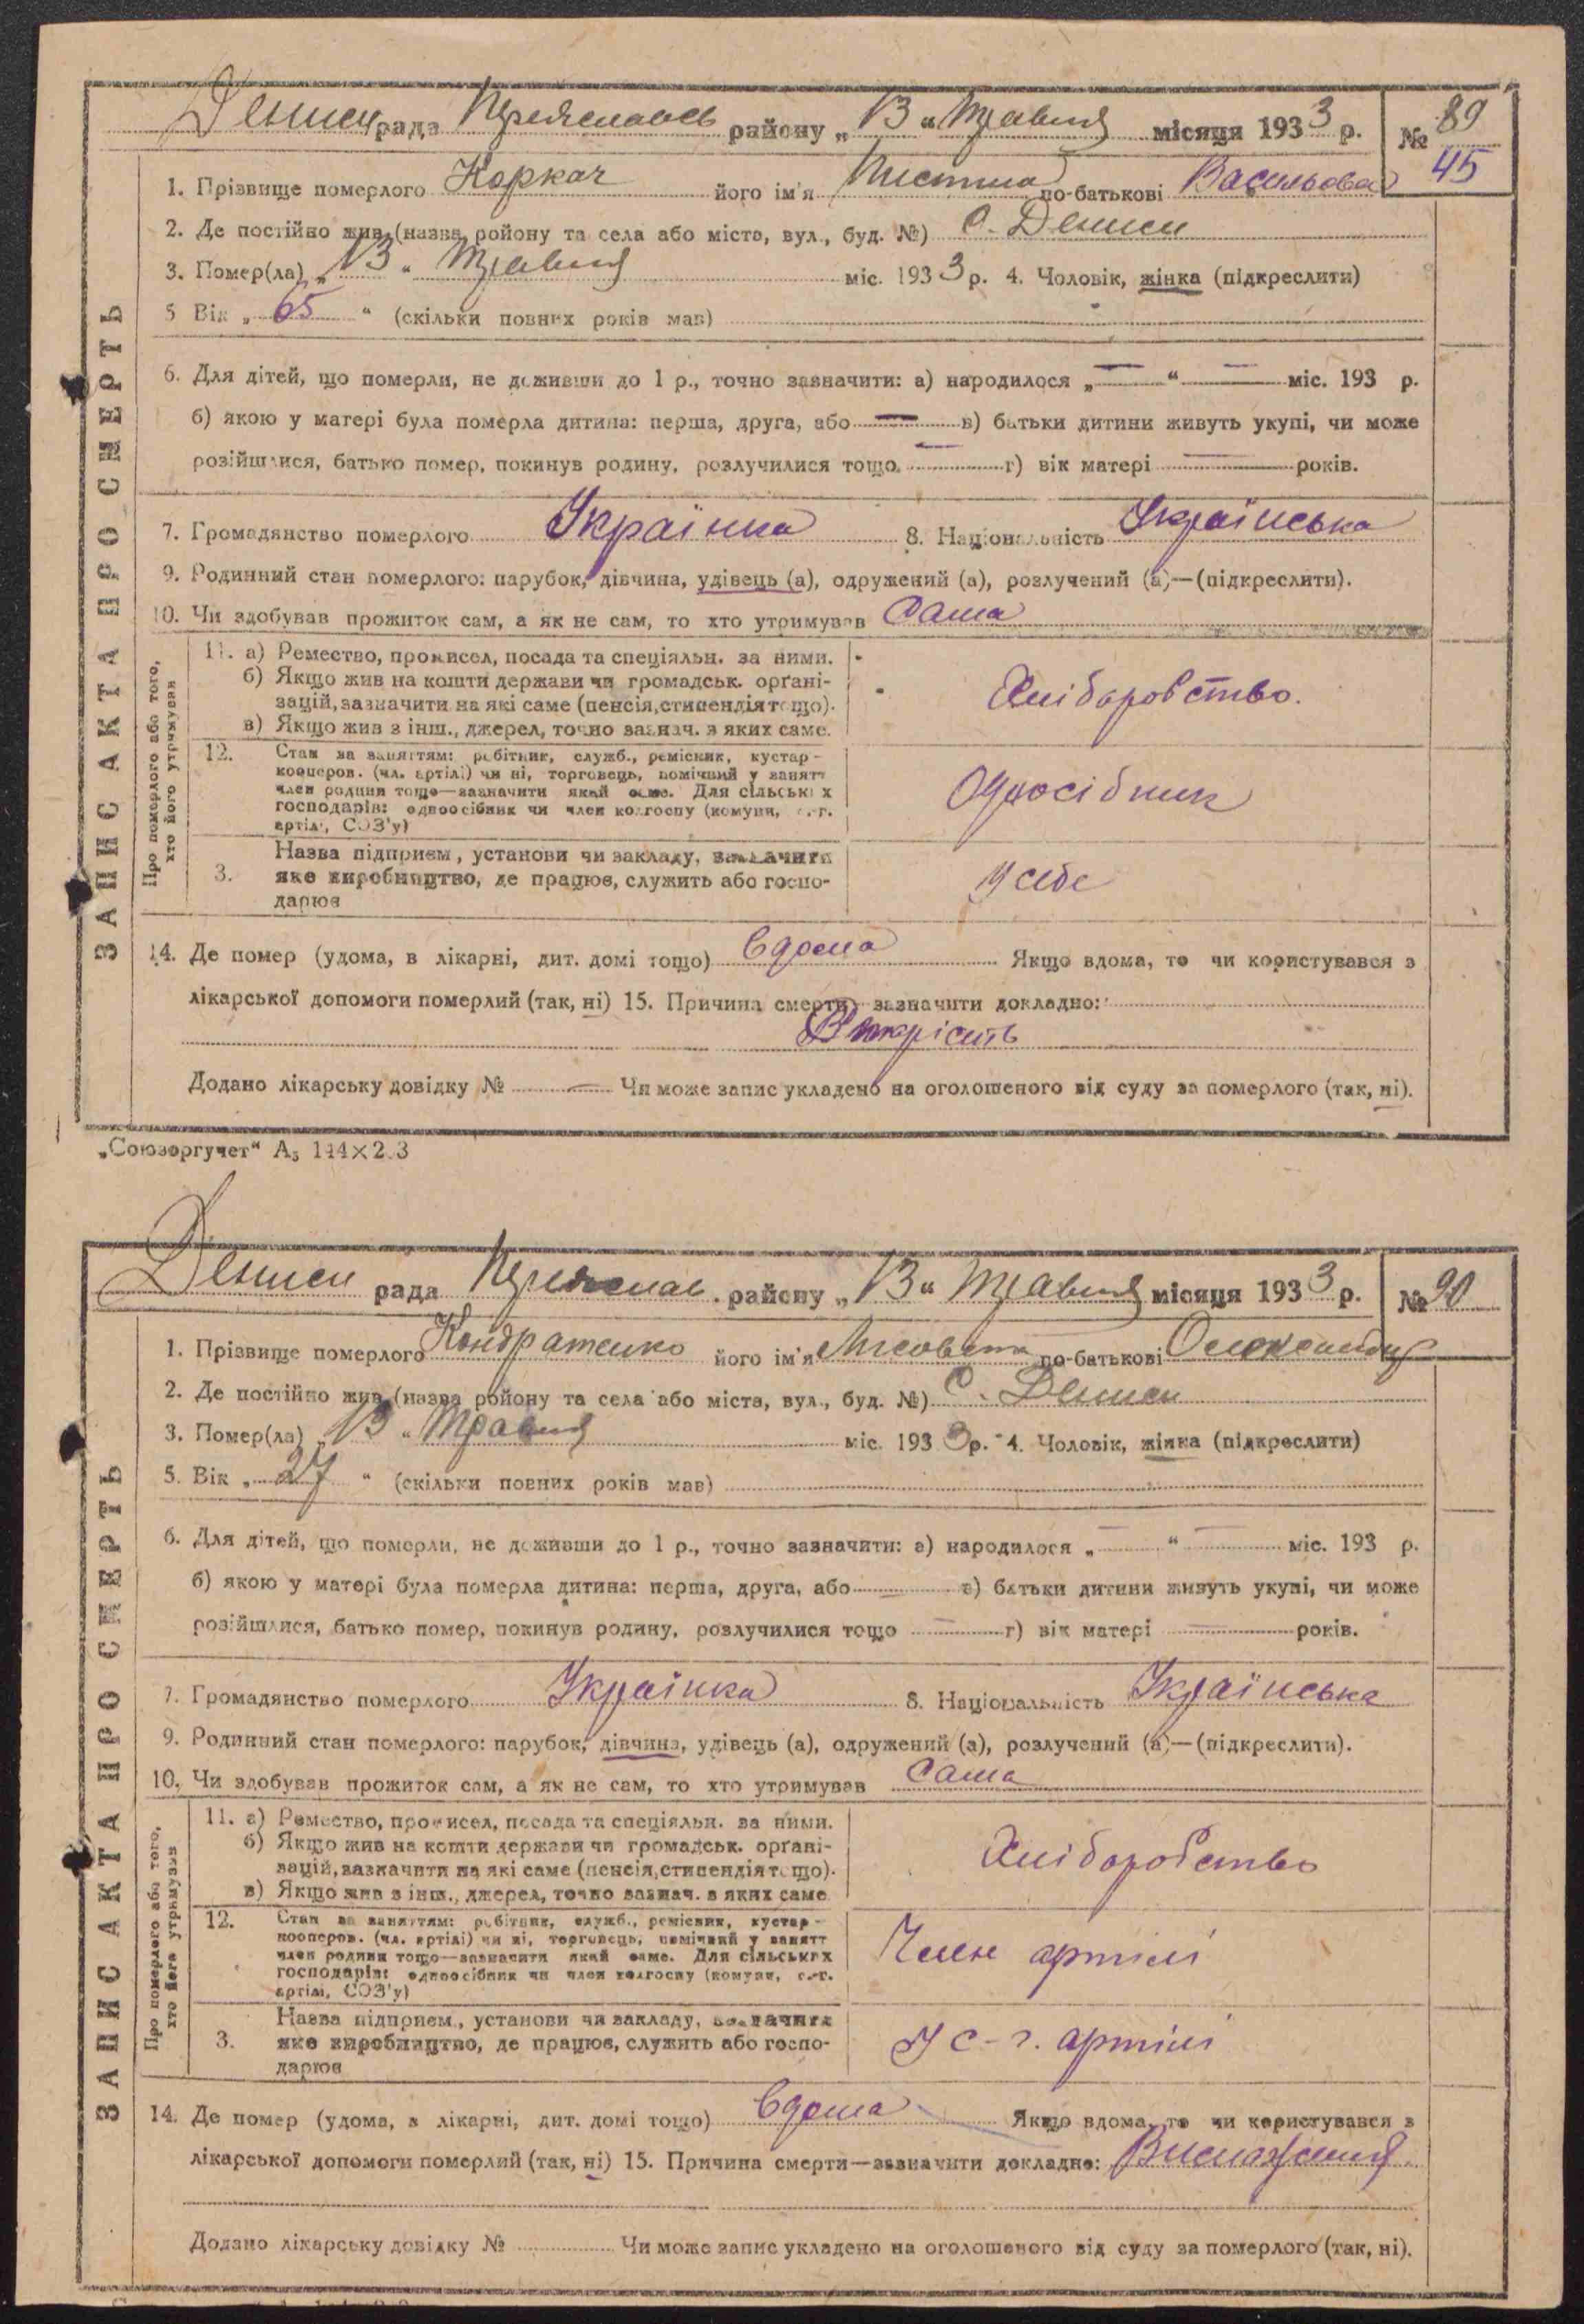 Дениси рада Переяславсь району „13“ Травня місяця 1933 р. № 89
45
1. Прізвище померлого Коркач його ім'я Пистина по-батькові Васильова
2. Де постійно жив (назва ройону та села або міста, вул., буд. №) С. Дениси
3. Помер(ла) „13“ Травня міс. 1933 р. 4. Чоловік, жінка (підкреслити)
5 Вік „65“ (скільки повних років мав)
6. Для дітей, що померли, не доживши до 1 р., точно зазначити: а) народилося „—“ — міс. 193 р.
б) якою у матері була померла дитина: перша, друга, або — в) батьки дитини живуть укупі, чи може
розійшлися, батько помер, покинув родину, розлучилися тощо — г) вік матері — років.
7. Громадянство померлого Українка 8. Національність Українська
9. Родинний стан померлого: парубок, дівчина, удівець (а), одружений (а), розлучений (а)—(підкреслити).
10. Чи здобував прожиток сам, а як не сам, то хто утримував Сама
ЗАПИС АКТА ПРО СМЕРТЬ
Про померлого або того,
хто його утримував
11. а) Ремество, промисел, посада та спеціяльн. за ними.
б) Якщо жив на кошти держави чи громадськ. орґані-
зацій, зазначити на які саме (пенсія, стипендія тощо).
в) Якщо жив з інш., джерел, точно зазнач. з яких саме.
Хліборобство.
12. Стан за заняттям: робітник, служб., ремісник, кустар-
кооперов. (чл. артілі) чи ні, торговець, помічний у занятт
член родини тощо—зазначити який саме. Для сільських
господарів: одноосібник чи член колгоспу (комуни, с.-г.
артілі, СОЗ'у)
Одноосібник
3. Назва підприєм., установи чи закладу, зазначити
яке виробництво, де працює, служить або госпо-
дарює
У себе
14. Де помер (удома, в лікарні, дит. домі тощо) Вдома Якщо вдома, то чи користувався з
лікарської допомоги померлий (так, ні) 15. Причина смерти—зазначити докладно:
Додано лікарську довідку № — Чи може запис укладено на оголошеного від суду за померлого (так, ні).
„Союзоргучет“ А₅ 144×2 3
Дениси рада Переяслав. району „13“ Травня місяця 1933 р. № 90
1. Прізвище померлого Кондратенко його ім'я по-батькові Олександр
2. Де постійно жив (назва ройону та села або міста, вул., буд. №) С. Дениси
3. Помер(ла) „13“ Травня міс. 1933 р. 4. Чоловік, жінка (підкреслити)
5. Вік „27“ (скільки повних років мав)
6. Для дітей, що померли, не доживши до 1 р., точно зазначити: а) народилося „—“ — міс. 193 р.
б) якою у матері була померла дитина: перша, друга, або — в) батьки дитини живуть укупі, чи може
розійшлися, батько помер, покинув родину, розлучилися тощо — г) вік матері — років.
7. Громадянство померлого Українка 8. Національність Українська
9. Родинний стан померлого: парубок, дівчина, удівець (а), одружений (а), розлучений (а)—(підкреслити).
10. Чи здобував прожиток сам, а як не сам, то хто утримував Сама
ЗАПИС АКТА ПРО СМЕРТЬ
Про померлого або того,
хто його утримував
11. а) Ремество, промисел, посада та спеціяльн. за ними.
б) Якщо жив на кошти держави чи громадськ. орґані-
зацій, зазначити на які саме (пенсія, стипендія тощо).
в) Якщо жив з інш., джерел, точно зазнач. з яких саме
Хліборобство
12. Стан за заняттям: робітник, служб., ремісник, кустар-
кооперов. (чл. артілі) чи ні, торговець, помічний у занятт
член родини тощо—зазначити який саме. Для сільських
господарів: одноосібник чи член колгоспу (комуни, с.-г.
артілі, СОЗ'у)
Член артілі
3. Назва підприєм., установи чи закладу, зазначити
яке виробництво, де працює, служить або госпо-
дарює
У с-г. артілі
14. Де помер (удома, в лікарні, дит. домі тощо) Вдома Якщо вдома, то чи користувався з
лікарської допомоги померлий (так, ні) 15. Причина смерти—зазначити докладно: Виснаження.
Додано лікарську довідку № Чи може запис укладено на оголошеного від суду за померлого (так, ні).